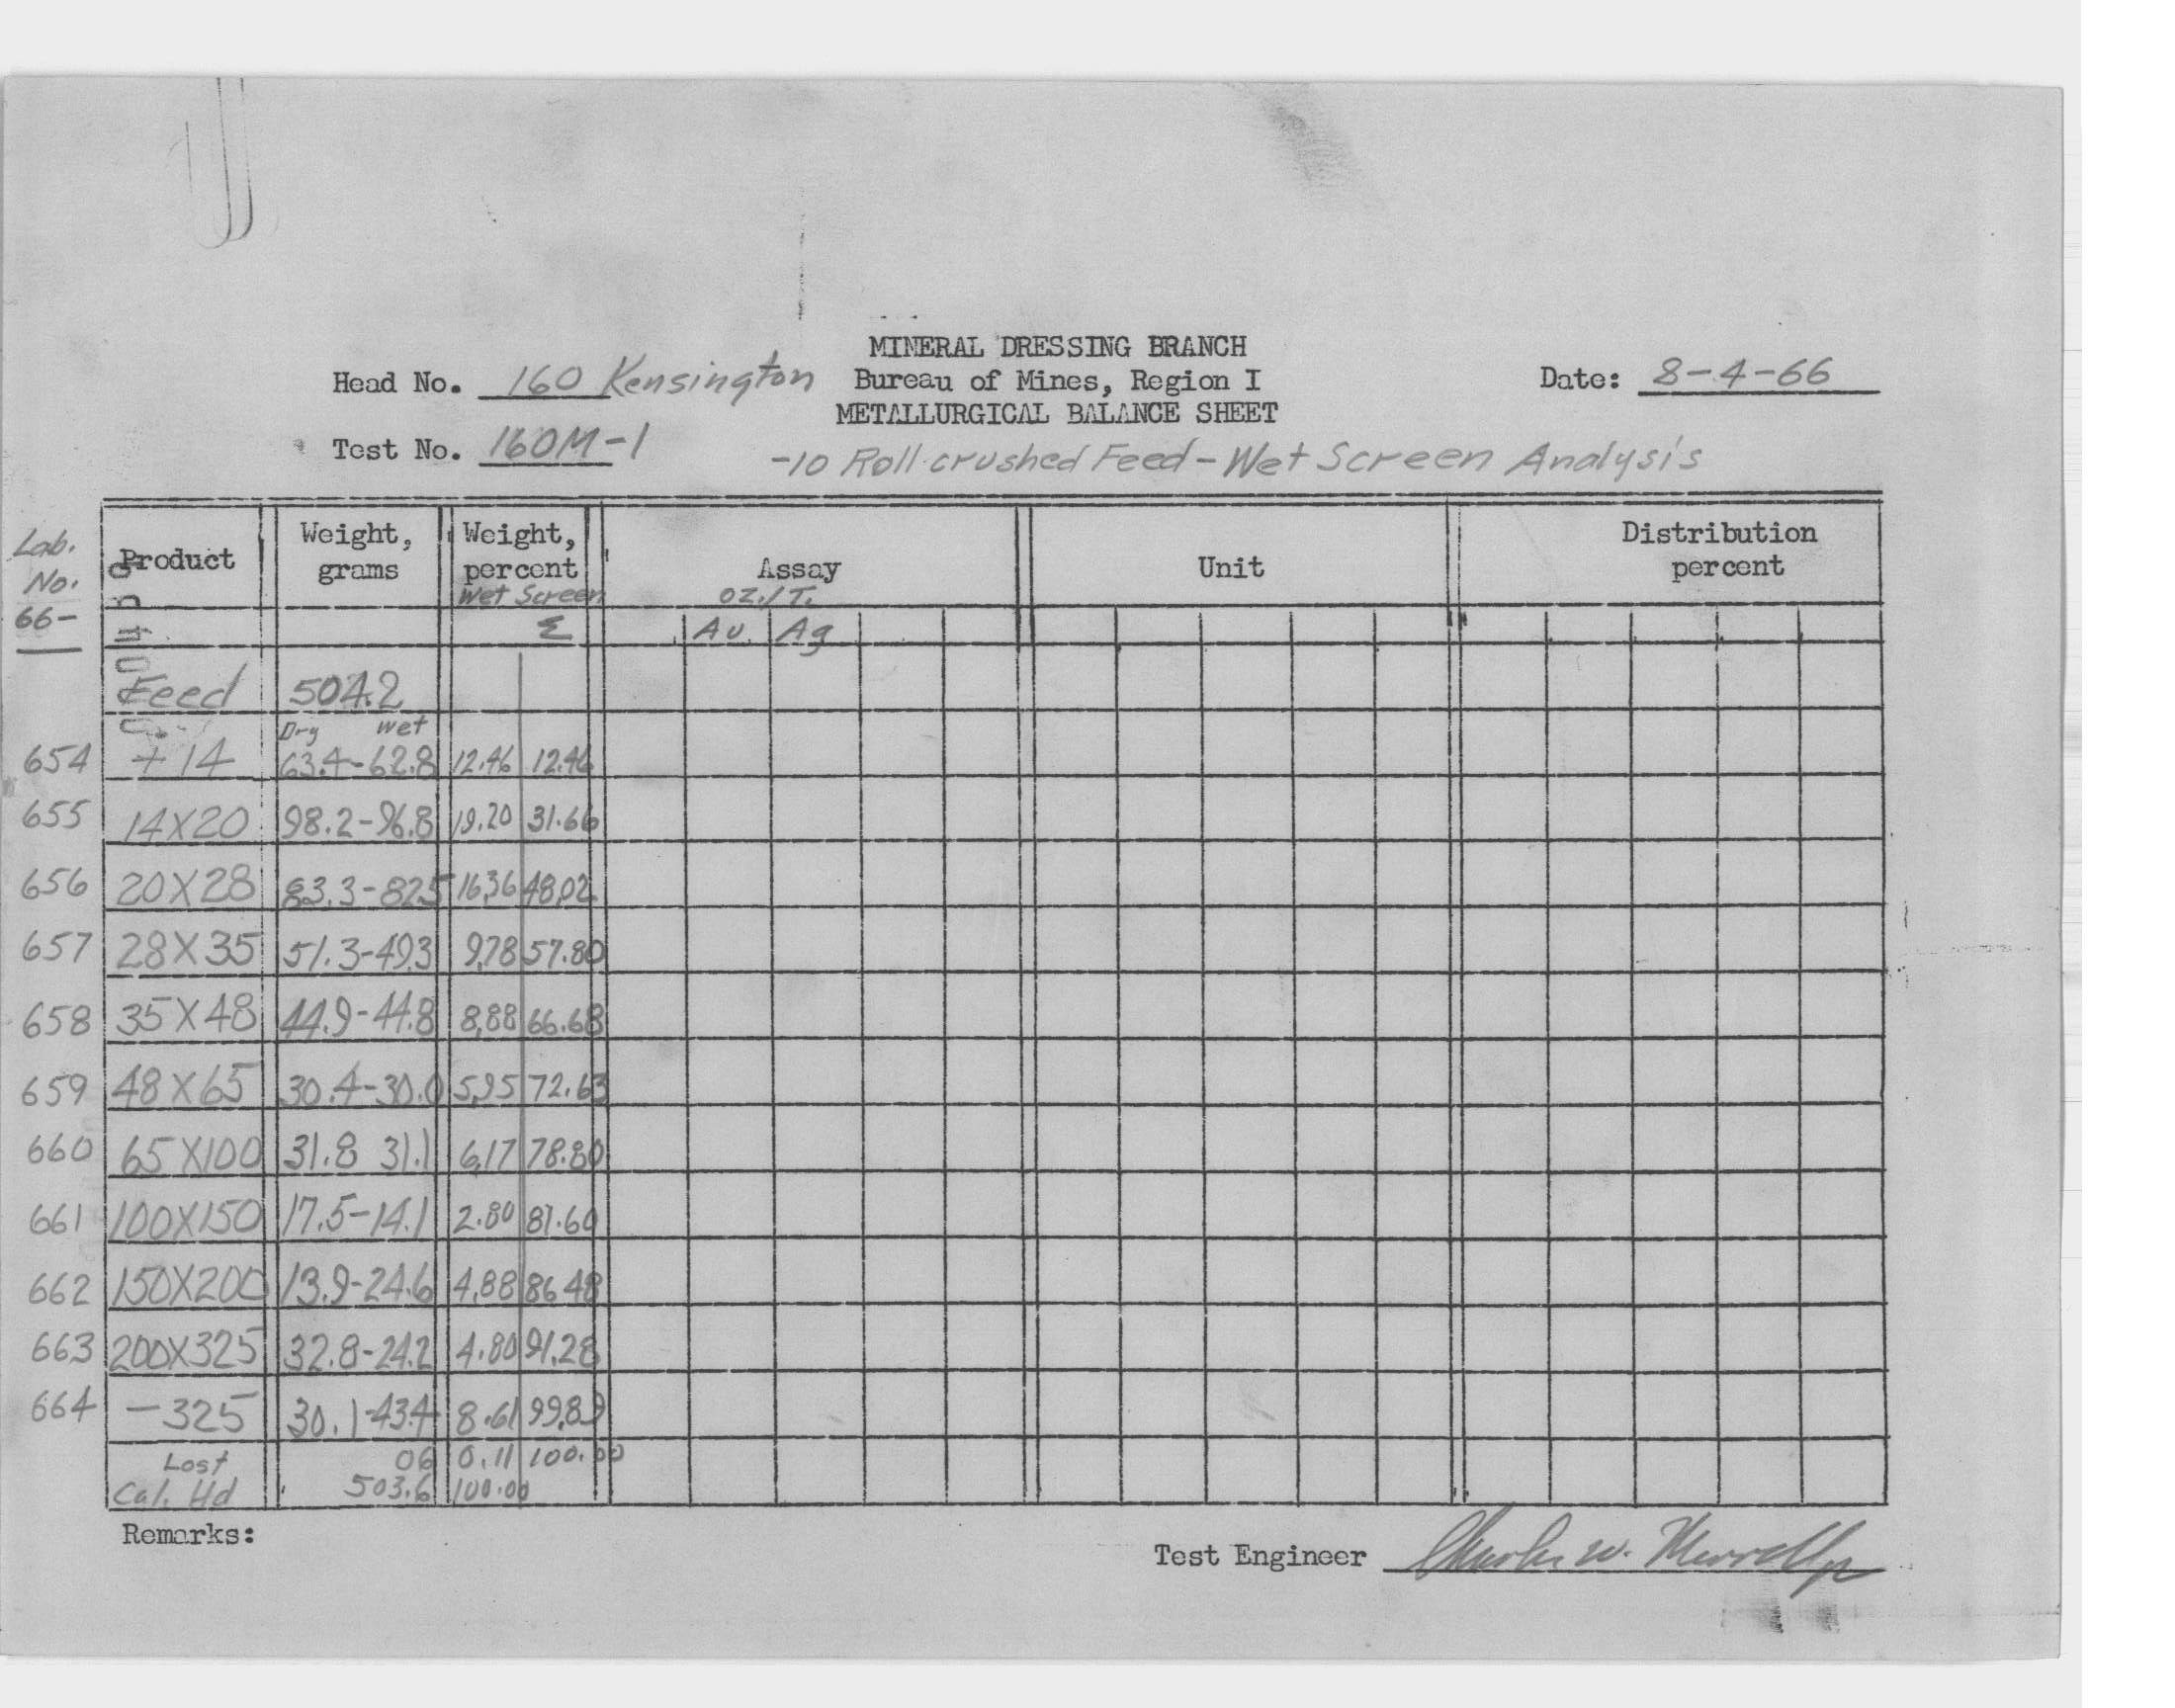 MINERAL DRESSING BRANCH
Head No. 160 Kensington Bureau of Mines, Region I Date: 8-4-66
METALLURGICAL BALANCE SHEET
Test No. 160M-1 -10 Roll crushed Feed - Wet Screen Analysis
Lab. No. 66- Product Weight, grams Weight, percent Wet Screen Assay oz./T. Unit Distribution percent
Σ Au. Ag
Feed 504.2
Dry Wet
654 +14 63.4-62.8 12.46 12.46
655 14X20 98.2-96.8 19.20 31.66
656 20X28 83.3-82.5 16.36 48.02
657 28X35 51.3-49.3 9.78 57.80
658 35X48 44.9-44.8 8.88 66.68
659 48X65 30.4-30.0 5.95 72.63
660 65X100 31.8 31.1 6.17 78.80
661 100X150 17.5-14.1 2.80 81.60
662 150X200 13.9-24.6 4.88 86.48
663 200X325 32.8-24.2 4.80 91.28
664 -325 30.1-43.4 8.61 99.89
Lost 06 0.11 100.00
Cal. Hd 503.6 100.00
Remarks:
Test Engineer Charles W. Merrell Jr